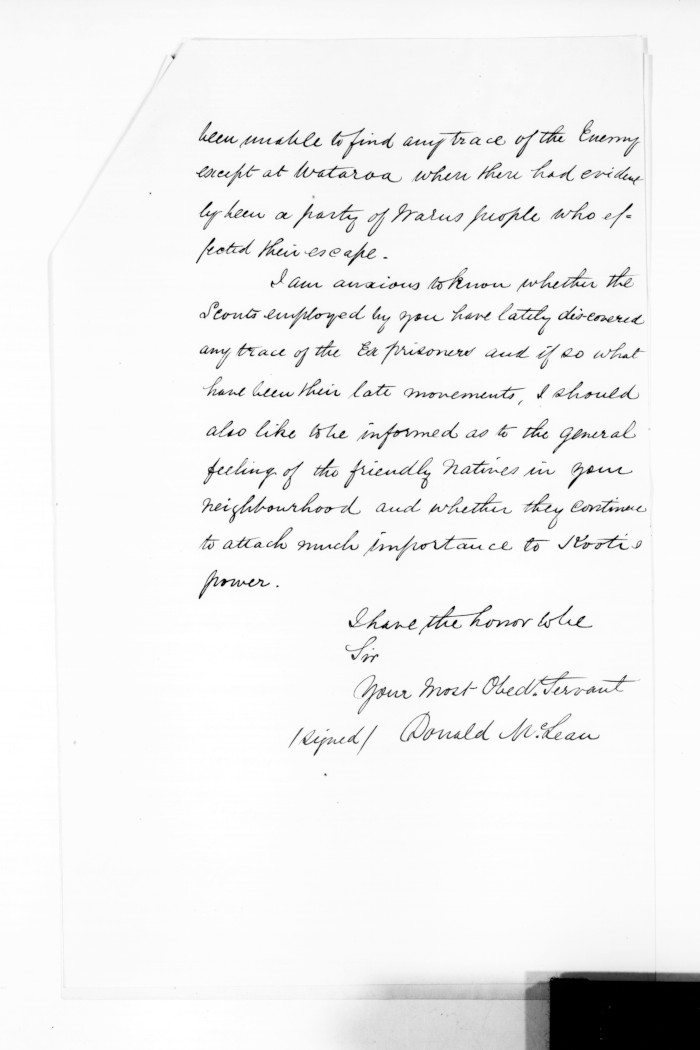 been unable to find any trace of the Enemy
except at Wataroa when there had evident
ly been a party of Warus people who ef=
fected their escape.
I am anxious to know whether the
Scouts employed by you have lately discovered
any trace of the Ex prisoners and if so what
have been their late movements, I should
also like to be informed as to the general
feeling of the friendly Natives in your
neighbourhood and whether they continue
to attach much importance to Kooti's
power.
I have the honor to be
Sir
Your Most Obedt. Servant
/signed/ Donald McLean